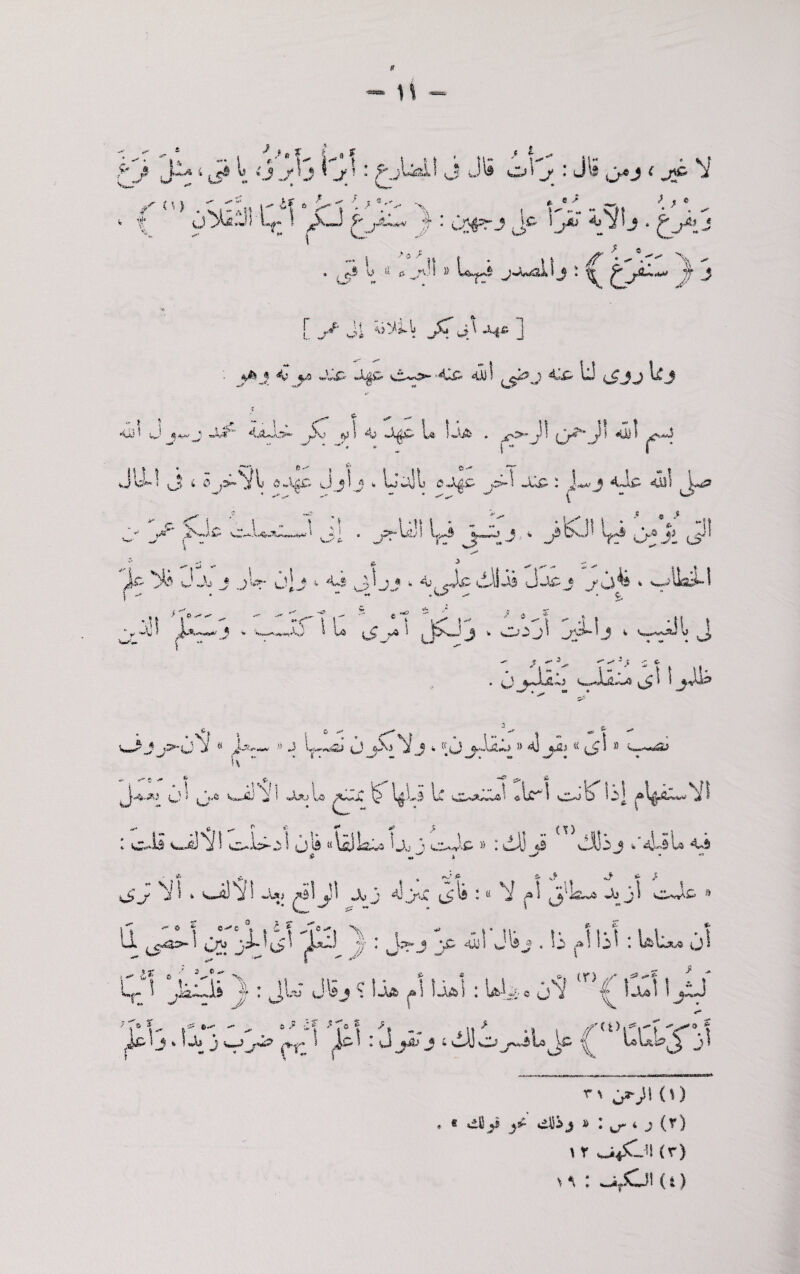 — ١١ —
لا غير ، ومن قال : برأت قال في المضارع : أبرأ وأبرؤ يا فتى ، مثل فرغ
ويفرغ . والآية تقرأ على وجهين : ( سَنَفْرُغُ لَكُمْ أَيُّهَا الثَّقَلَانِ ) (١) .
و ( سَنَفْرَغُ ) : والمصدر فيهما « البُرْء » يا فتى .
[ عهد أبي بكر بالخلافة إلى عمر ]
ومما رُوي لنا عنه رضي الله عنه حيث عهد عند موته وهو :
بسم الله الرحمن الرحيم . هذا ما عهد به أبو بكر خليفة محمد رسول الله
صلى الله عليه وسلم : عند آخر عهده بالدنيا ، وأول عهده بالآخرة ، في الحال
التي يؤمن فيها الكافر ، ويتقي فيها الفاجر . إني استعملت عليكم عمر بن
الخطاب ، فإن بر وعدل فذلك علمي به ، ورأيي فيه ، وإن جار وبدل فلا علم
لي بالغيب ، والخير أردت ، ولكل امرئ ما اكتسب ، وسيعلم الذين
ظلموا أي منقلب ينقلبون .
نصب « أي » بقوله « ينقلبون » ، ولا يكون نصبها بـ « سيعلم » لأن حروف
الاستفهام إذا كانت أسماء امتنعت مما قبلها كما يمتنع ما بعد الألف من أن يعمل
فيه ما قبله ، وذلك (٢) قولك : « علمت زيدا منطلقا » فإن أدخلت الألف قلت :
« علمت أزيد منطلق أم لا » : فأي بمنزلة زيد الواقع بعد الألف ، ألا ترى
أن معناها : أذا أم ذا . وقال الله عز وجل : ( لِنَعْلَمَ أَيُّ الْحِزْبَيْنِ أَحْصَى لِمَا
لَبِثُوا أَمَدًا ) (٣) لأن معناها : أهذا أم هذا ؟ وقال تعالى : ( فَلْيَنْظُرْ أَيُّهَا
أَزْكَى طَعَامًا ) (٤) على ما فسرت لك ، وتقول : أعلم أيهم ضرب زيدا ، وأعلم
(١) الرحمن ٣١
(٢) ر ، س : « وذلك نحو قولك » .
(٣) الكهف ١٢
(٤) الكهف : ١٩